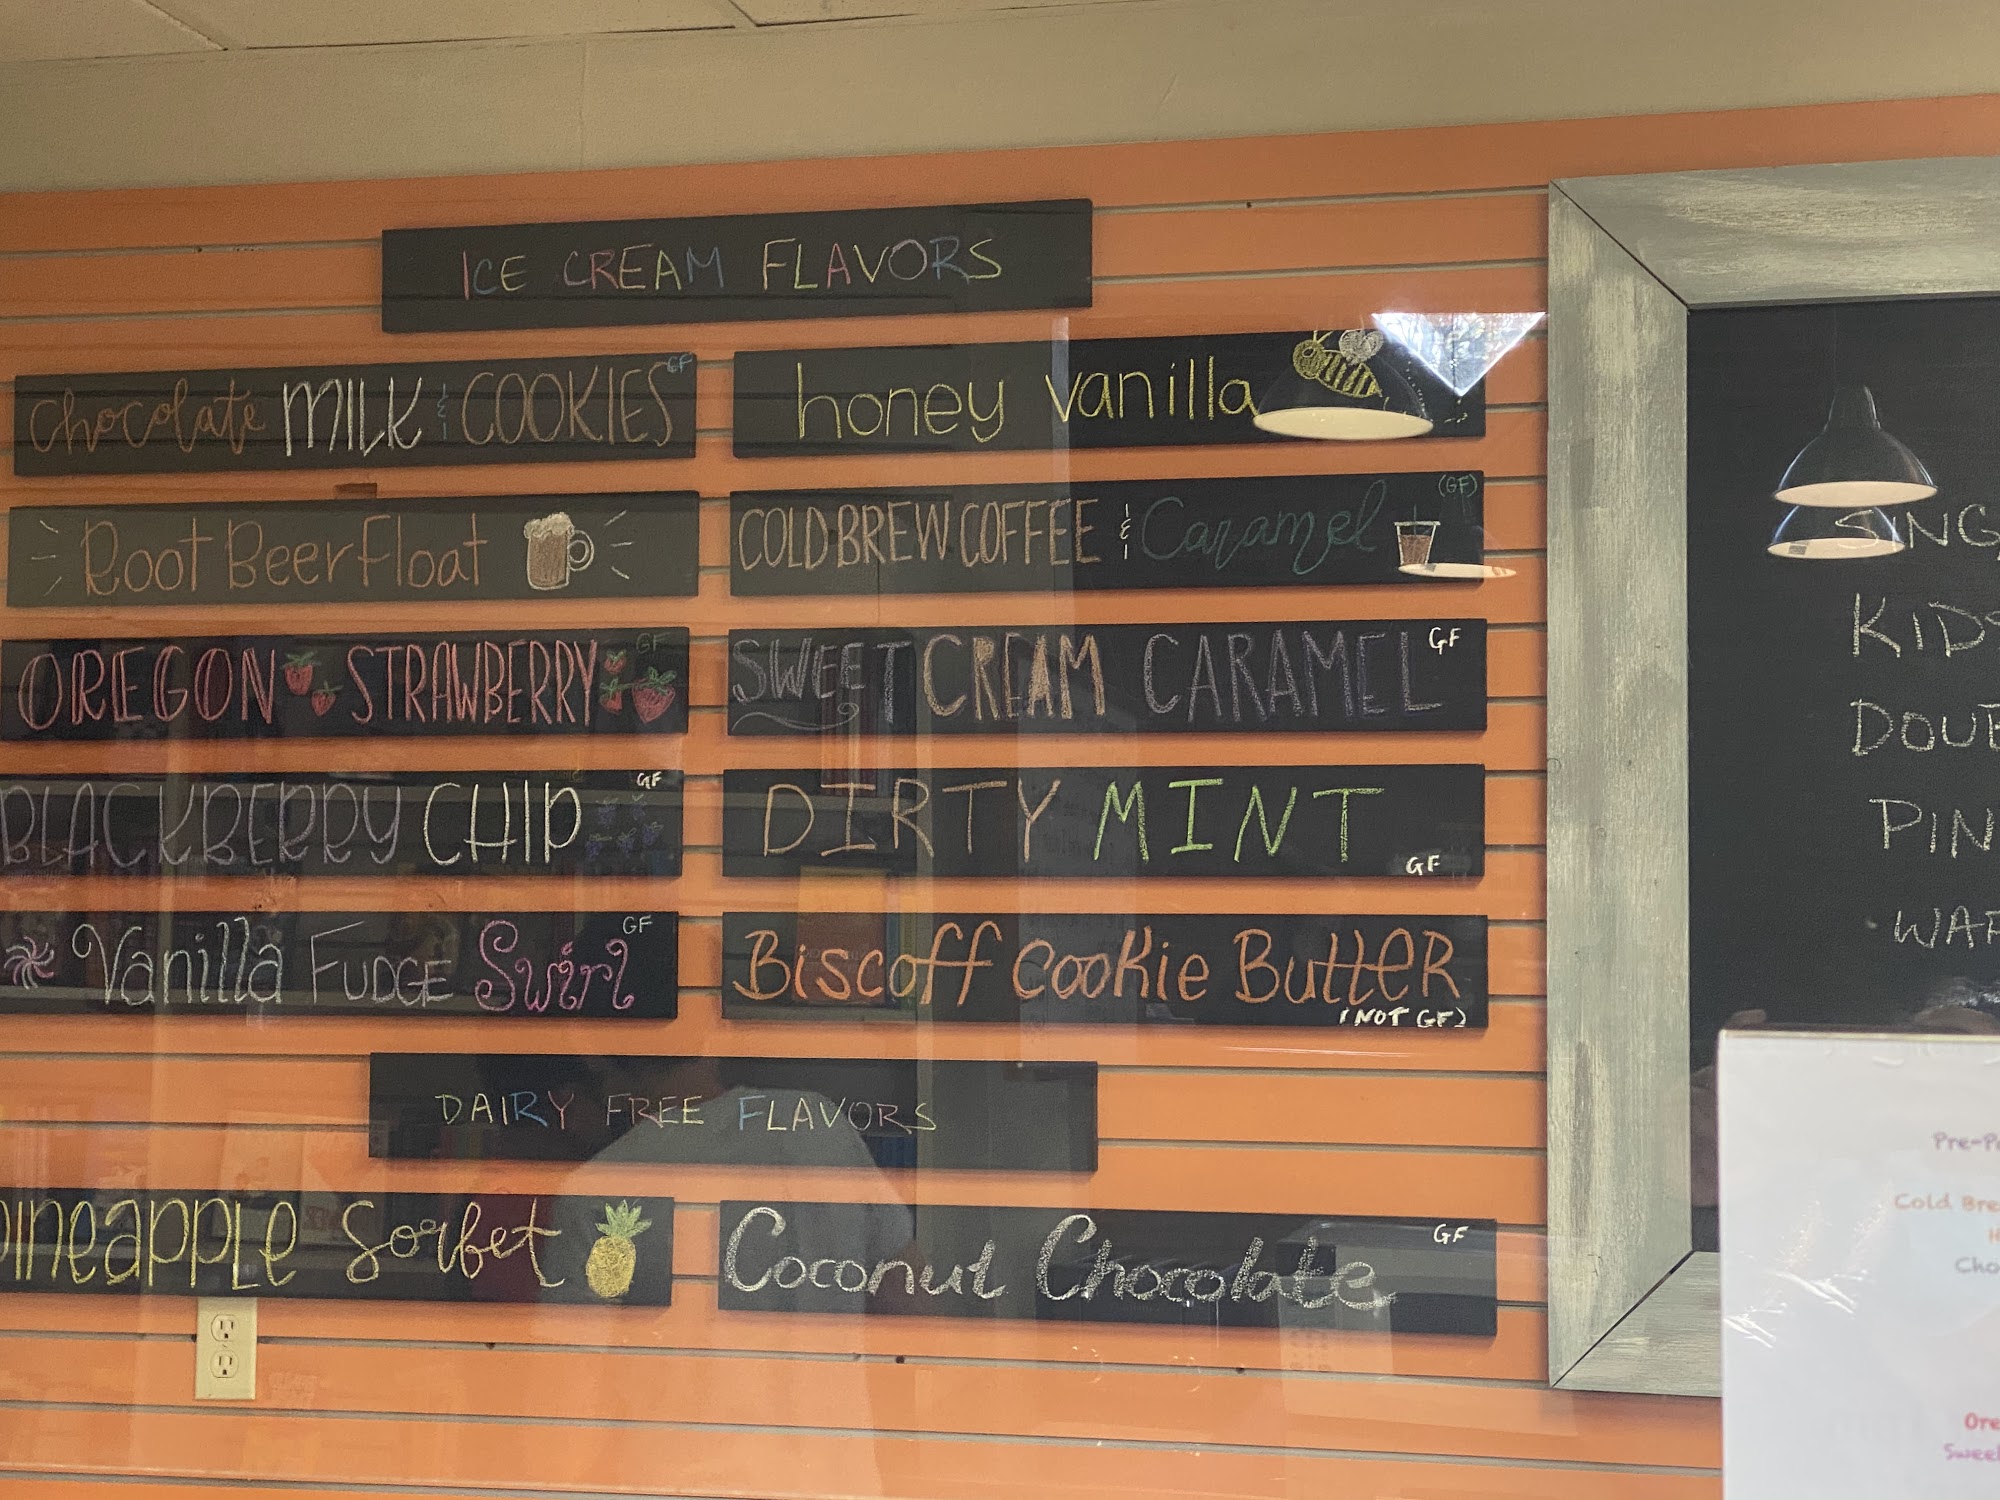 ICE CREAM FLAVORS
chocolate MILK & COOKIES GF
honey vanilla
Root Beer Float
COLD BREW COFFEE & Caramel (GF)
OREGON STRAWBERRY GF
SWEET CREAM CARAMEL GF
BLACKBERRY CHIP GF
DIRTY MINT GF
Vanilla FUDGE Swirl GF
Biscoff Cookie Butter
(NOT GF)
DAIRY FREE FLAVORS
pineapple Sorbet
Coconut Chocolate GF
SING
KIDS
DOUB
PIN
WAF
Pre-P
Cold Bre
H
Cho
Ore
Sweet